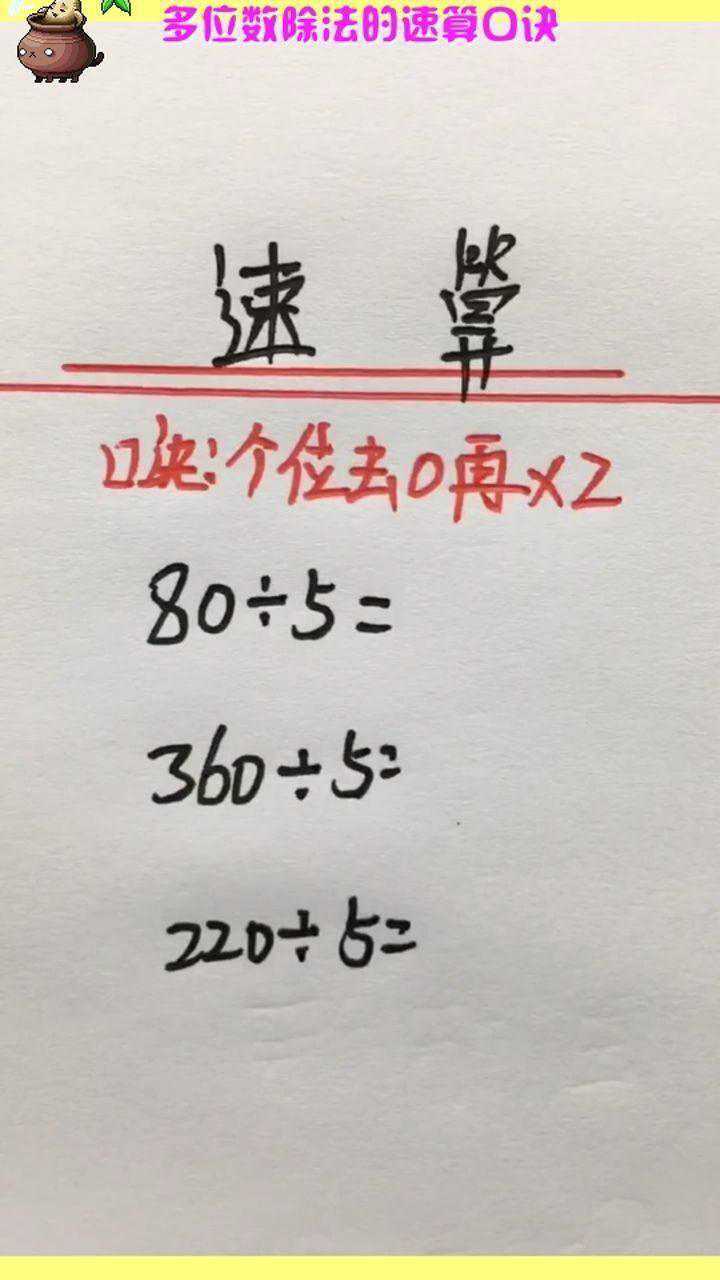 多位数除法的速算口诀
速算
口诀:个位去0再×2
80÷5=
360÷5=
220÷5=